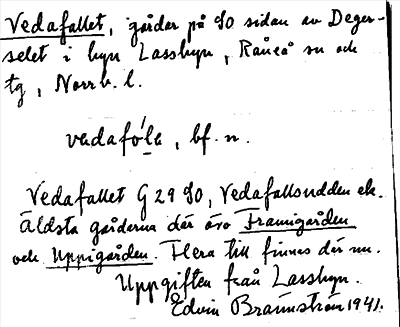 Vedafallet, gårdar på SO sidan av Deger-
selet i byn Lassbyn, Råneå sn och
tg, Norrb. l.
vedafólẹ, bf. n.
Vedafallet G 29 SO, Vedafallsudden ek.
Äldsta gårderna där äro Framigården
och Uppigården. Flera till finnes där nu.
Uppgiften från Lassbyn.
Edvin Brännström 1941.